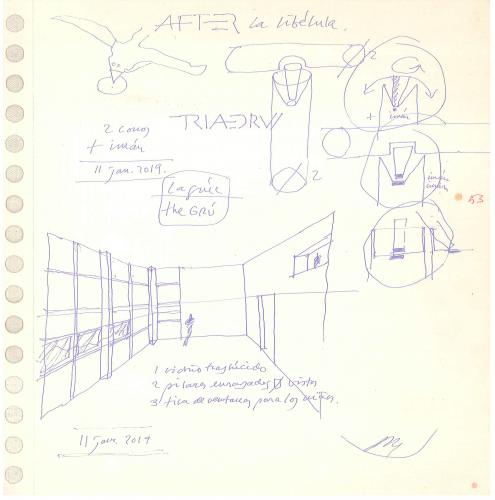 AFTER La libélula.
2
2 conos
+ imán
11 Jan. 2019.
+ imán
2
imán
imán
53
the GRÚ
1 vidrio traslúcido
2 pilares enrasados o vistos
3 tira de ventanas para los niños.
11 Jan. 2019